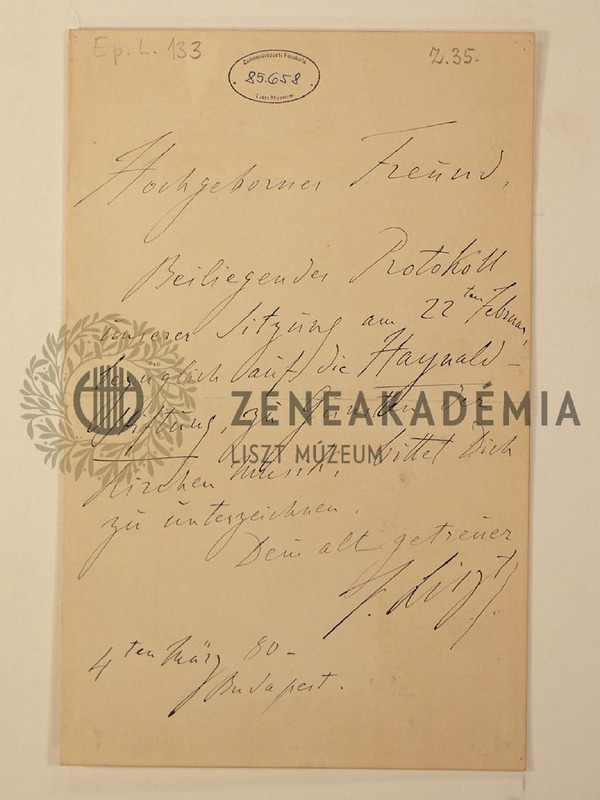 Ep. L. 133
Z. 35.
Zeneművészeti Főiskola
85.658
Liszt Múzeum
Hochgeborner Freund,
Beiliegendes Protokoll
unserer Sitzung am 22ten Februar,
bezüglich auf die Haynald-
Stiftung, zu Gunsten der
Kirchen Musik, bittet Dich
zu unterzeichnen.
Dein alt getreuer
F. Liszt.
4ten März 80-
Budapest.
ZENEAKADÉMIA
LISZT MÚZEUM